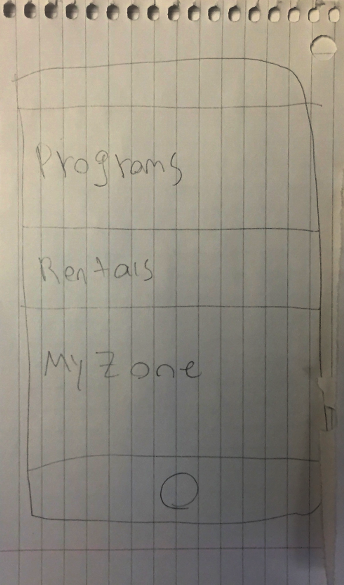 Programs
Rentals
My Zone